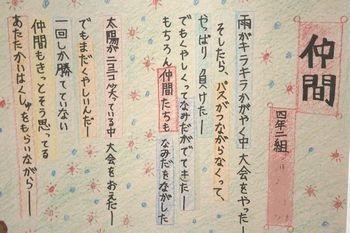 仲間
四年二組
雨がキラキラかがやく中 大会をやったー
そしたら、パスがつながらなくって、
やっぱり 負けたー
でもくやしくってなみだがでてきたー
もちろん仲間たちも なみだをながした
太陽がニコニコ笑っている中 大会をおえたー
でもまだくやしいんだー
一回しか勝てていない
仲間もきっとそう思ってる
あたたかいはくしゅをもらいながらー